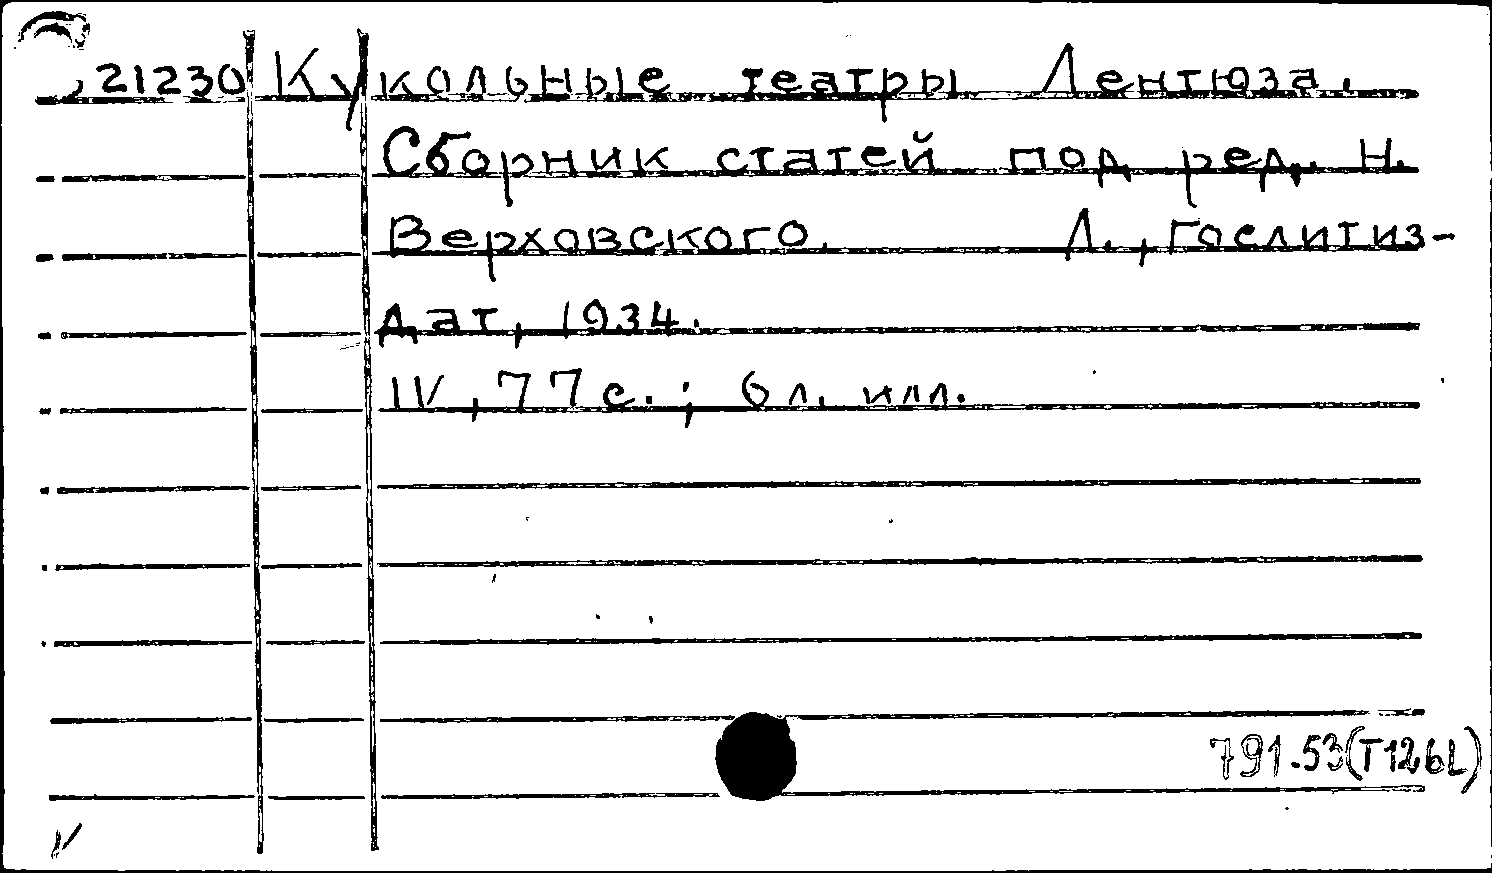 21230 Кукольные театры Лентюза.
Сборник статей под ред. Н.
Верховского. Л., Гослитиз-
дат, 1934.
IV, 77 с.; 6 л. илл.
791.53(T126L)